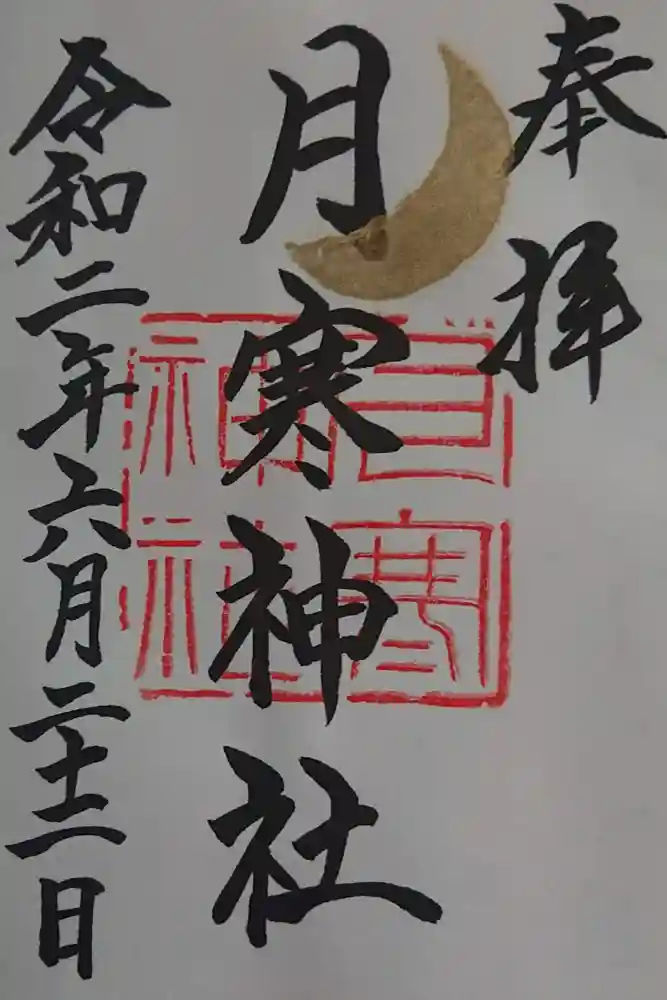 奉拝
月寒神社
月寒神社
令和二年六月二十一日